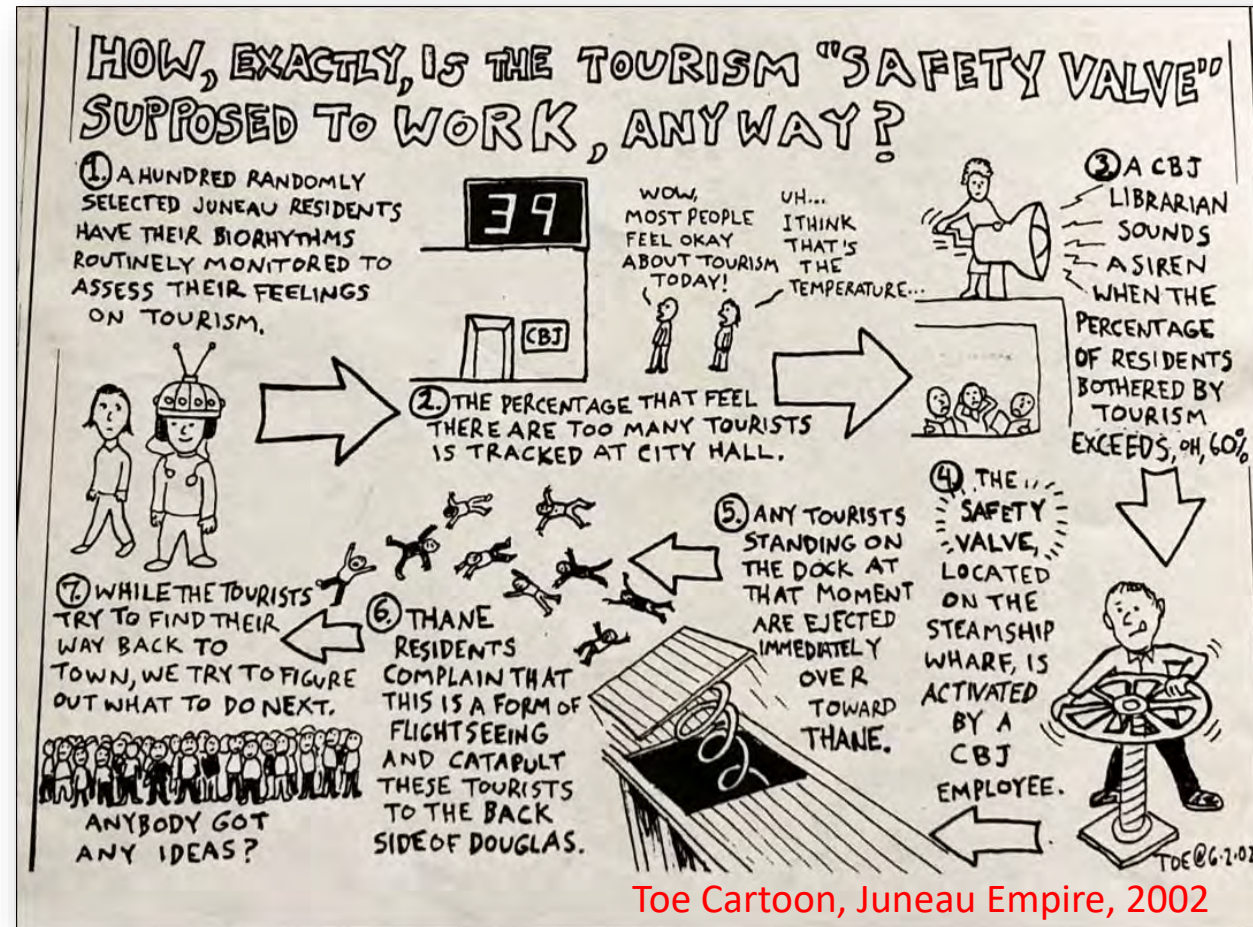 HOW, EXACTLY, IS THE TOURISM "SAFETY VALVE"
SUPPOSED TO WORK, ANYWAY?
1. A HUNDRED RANDOMLY
SELECTED JUNEAU RESIDENTS
HAVE THEIR BIORHYTHMS
ROUTINELY MONITORED TO
ASSESS THEIR FEELINGS
ON TOURISM.
39
CBJ
WOW,
MOST PEOPLE
FEEL OKAY
ABOUT TOURISM
TODAY!
UH...
I THINK
THAT'S
THE
TEMPERATURE...
2. THE PERCENTAGE THAT FEEL
THERE ARE TOO MANY TOURISTS
IS TRACKED AT CITY HALL.
3. A CBJ
LIBRARIAN
SOUNDS
A SIREN
WHEN THE
PERCENTAGE
OF RESIDENTS
BOTHERED BY
TOURISM
EXCEEDS, OH, 60%
4. THE
SAFETY
VALVE,
LOCATED
ON THE
STEAMSHIP
WHARF, IS
ACTIVATED
BY A
CBJ
EMPLOYEE.
5. ANY TOURISTS
STANDING ON
THE DOCK AT
THAT MOMENT
ARE EJECTED
IMMEDIATELY
OVER
TOWARD
THANE.
6. THANE
RESIDENTS
COMPLAIN THAT
THIS IS A FORM OF
FLIGHTSEEING
AND CATAPULT
THESE TOURISTS
TO THE BACK
SIDE OF DOUGLAS.
7. WHILE THE TOURISTS
TRY TO FIND THEIR
WAY BACK TO
TOWN, WE TRY TO FIGURE
OUT WHAT TO DO NEXT.
ANYBODY GOT
ANY IDEAS?
TOE@6.2.02
Toe Cartoon, Juneau Empire, 2002